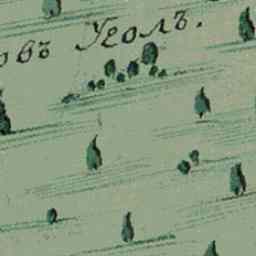 овъ Уголъ.